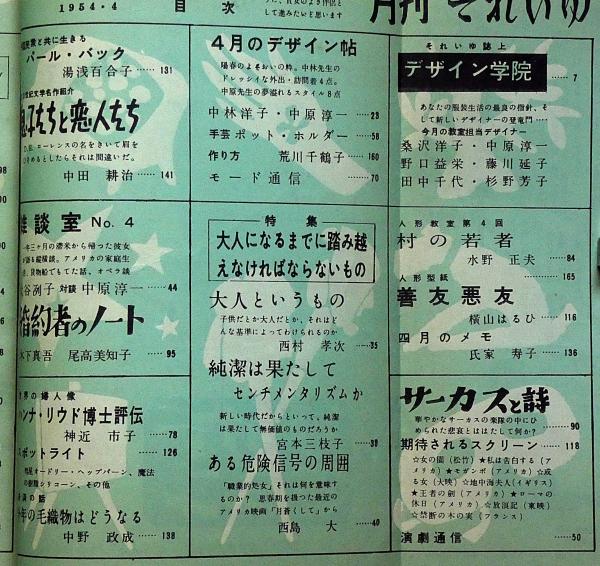 1954・4
目次
月刊 それいゆ
に進みたいと思います
それいゆ誌上
デザイン学院 7
あなたの服装生活の最良の指針、そ
して新しいデザイナーの登竜門……
今月の教室担当デザイナー
桑沢洋子・中原淳一
野口益栄・藤川延子
田中千代・杉野芳子
人形教室第4回
村の若者
水野正夫 …… 84
人形型紙 165
善友悪友
横山はるひ …… 116
四月のメモ
氏家寿子 …… 136
サーカスと詩
華やかなサーカスの楽隊の中にひ
められた悲哀とははたして何か? 90
期待されるスクリーン …… 118
☆女の園(松竹)★私は告白する(ア
メリカ)★モガンボ(アメリカ)☆或
る女(大映)☆地中海夫人(イギリス)
★王者の剣(アメリカ)★ローマの
休日(アメリカ)☆放浪記(東映)
☆禁断の木の実(フランス)
演劇通信 …… 50
4月のデザイン帖
陽春のよそおいの粋。中林先生の
ドレッシイな外出・訪問着4点。
中原先生の夢溢れるスタイル8点
中林洋子・中原淳一 …… 23
手芸ポット・ホルダー …… 58
作り方 荒川千鶴子 …… 160
モード通信 …… 70
特集
大人になるまでに踏み越
えなければならないもの
大人というもの
子供だとか大人だとか、それはど
んな基準によってわけられるものか
西村孝次 …… 35
純潔は果たして
センチメンタリズムか
新しい時代だからといって、純潔
は果たして無価値のものだろうか
宮本三枝子 …… 38
ある危険信号の周囲
「職業的処女」それは何を意味す
るのか? 思春期を扱った最近の
アメリカ映画「月蒼くして」から
西島大 …… 40
と共に生きる
パール・バック
湯浅百合子 …… 131
世紀文学名作紹介
息子たちと恋人たち
ローレンスの名をきいて眉を
めるとしたらそれは間違いだ。
中田耕治 …… 141
雑談室 No.4
年三ヶ月の滞米から帰った彼女
縦横談。アメリカの家庭生
、貨物船でもてた話、オペラ談
谷洌子 対談 中原淳一 …… 44
婚約者のノート
木下真吾 尾高美知子 …… 95
界の婦人像
ンナ・リウド博士評伝
神近市子 …… 78
スポットライト …… 126
オードリー・ヘップバーン、魔法
の樹脂シリコーン、その他
の話
年の毛織物はどうなる
中野政成 …… 138